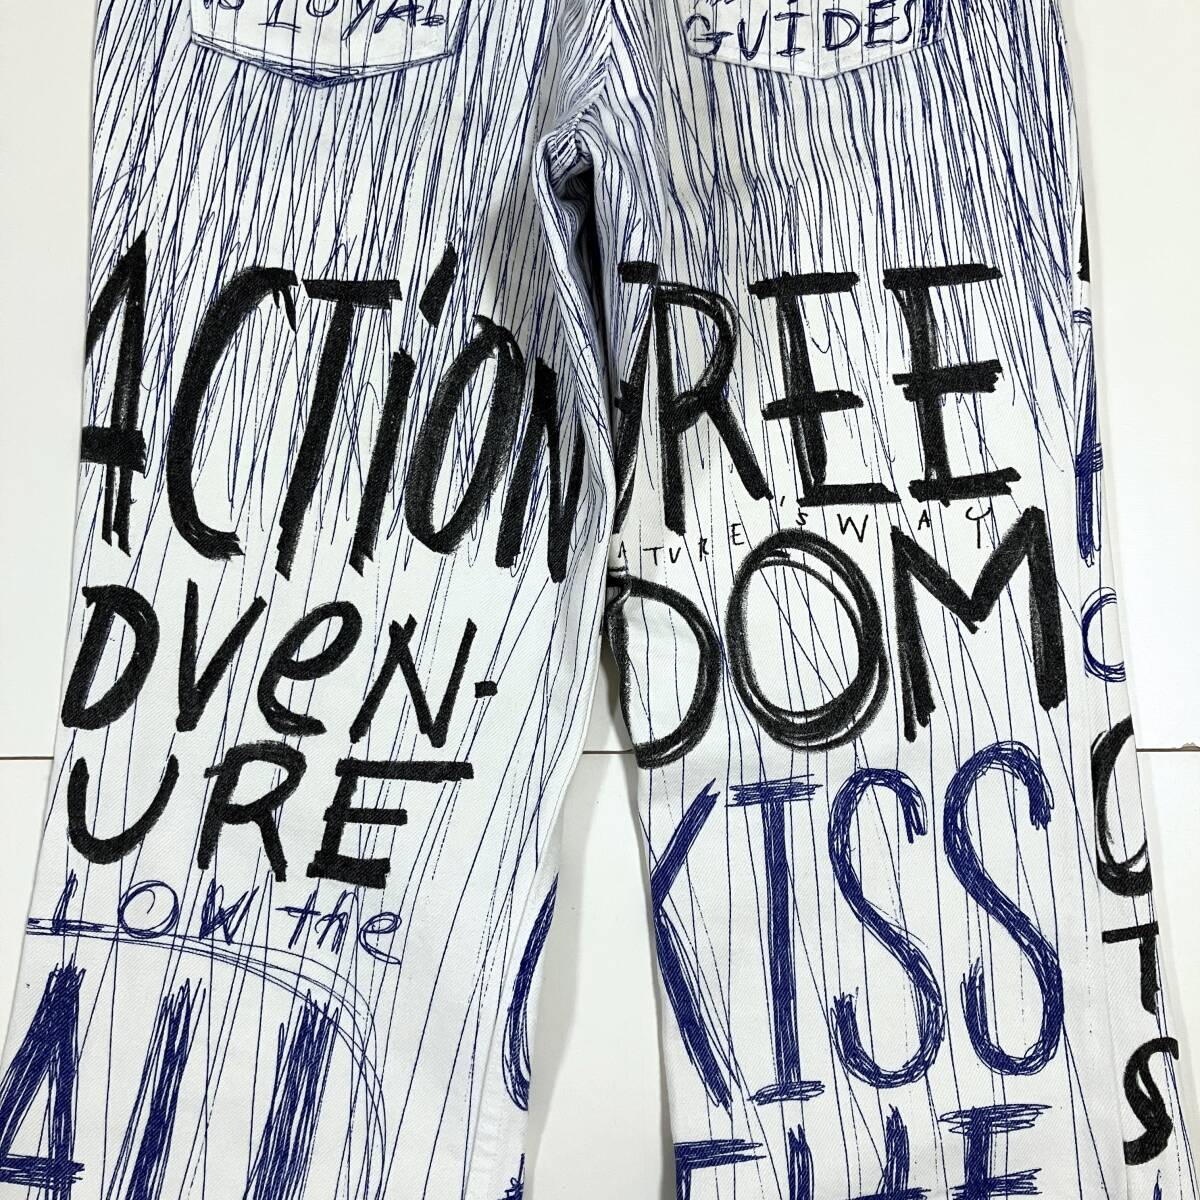 LOYAL
GUIDES
ACTION
DVEN-
URE
LOW the
REE
ATURE'S WAY
DOM
KISS
THE
OTS